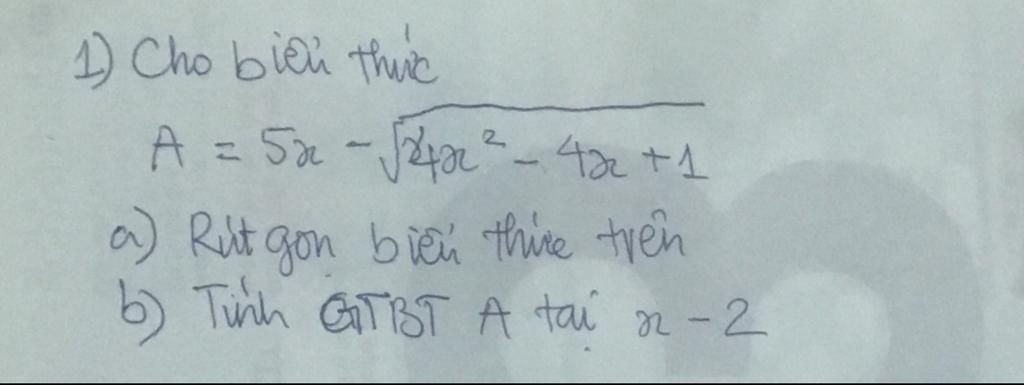 1) Cho biểu thức
A = 5x - √4x² - 4x + 1
a) Rút gọn biểu thức trên
b) Tính GTBT A tại x - 2